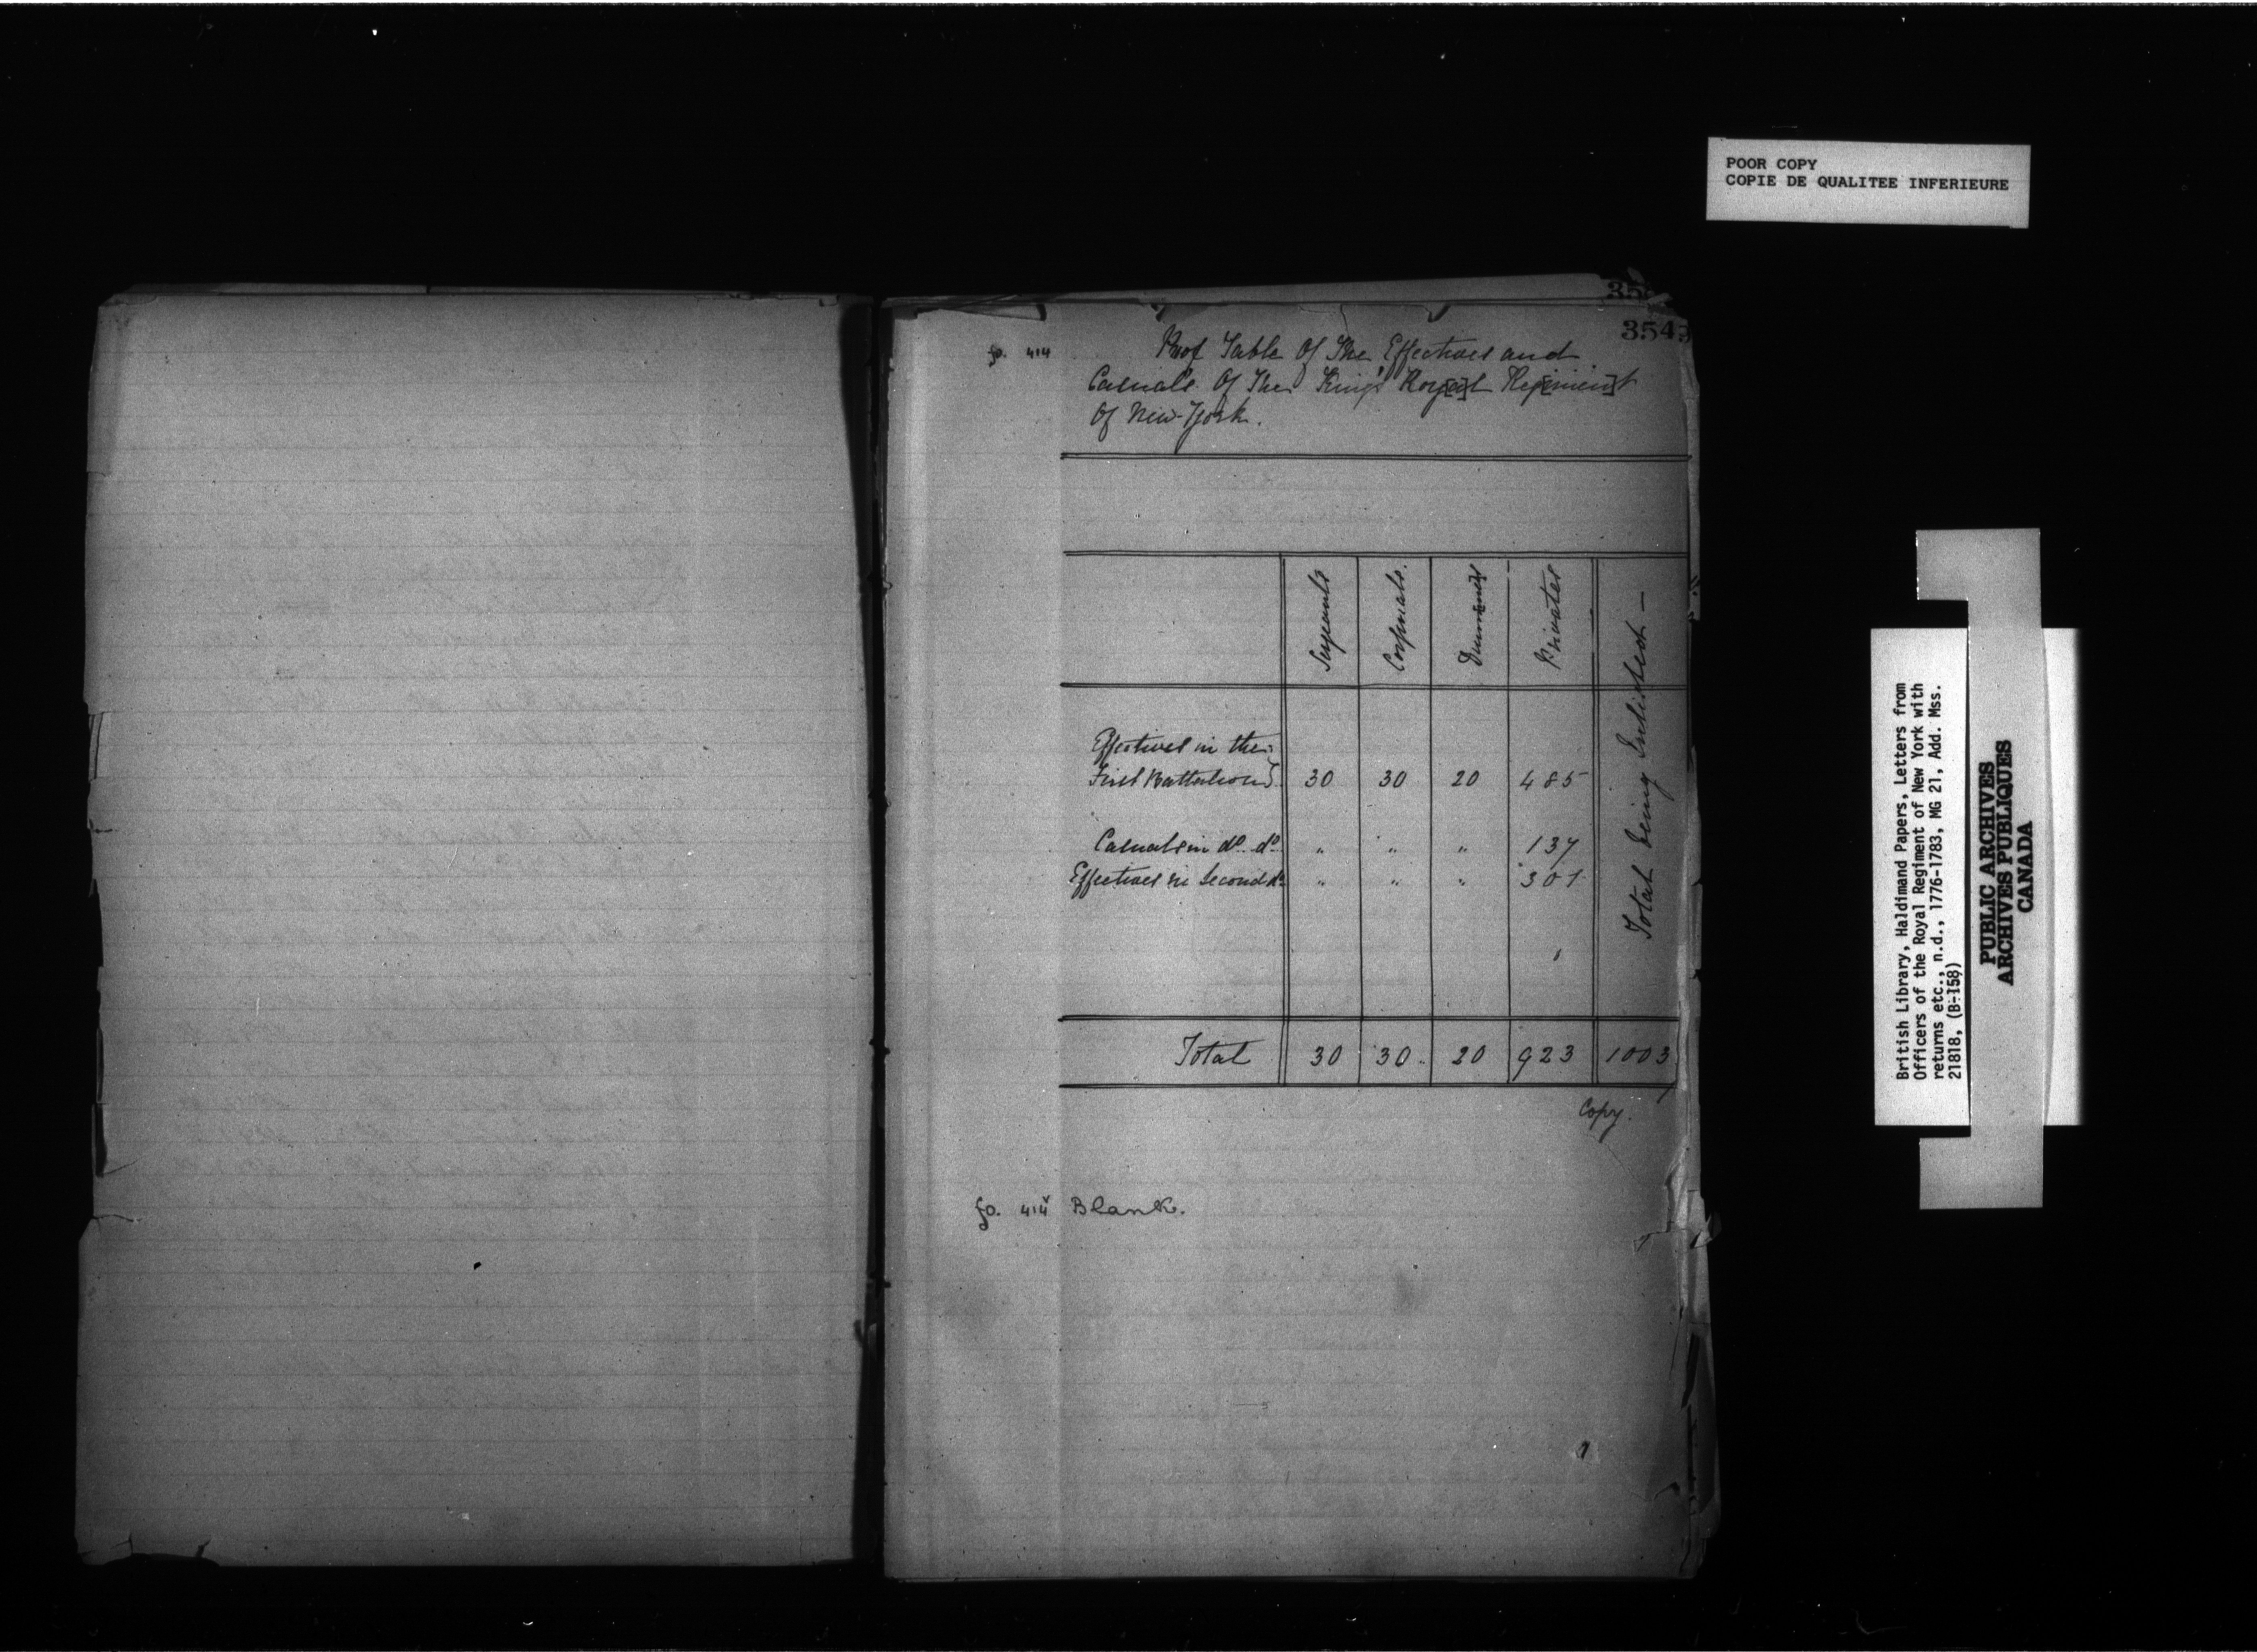 POOR COPY
COPIE DE QUALITEE INFERIEURE
354
fo. 414
Table Of The Effectives and
Casuals Of The King's Roy[a]l Reg[imen]t
Of New-York.
Serjeants
Corporals.
Drum[mer]s
Privates
Total being Inlisted —
Effectives in the
First Battalion } 30 30 20 485
Casuals in do. do. " " " 137
Effectives in Second do. " " " 301
Total 30 30 20 923 1003
Copy.
fo. 414v Blank.
British Library, Haldimand Papers, Letters from
Officers of the Royal Regiment of New York with
returns etc., n.d., 1776-1783, MG 21, Add. Mss.
21818, (B-158)
PUBLIC ARCHIVES
ARCHIVES PUBLIQUES
CANADA